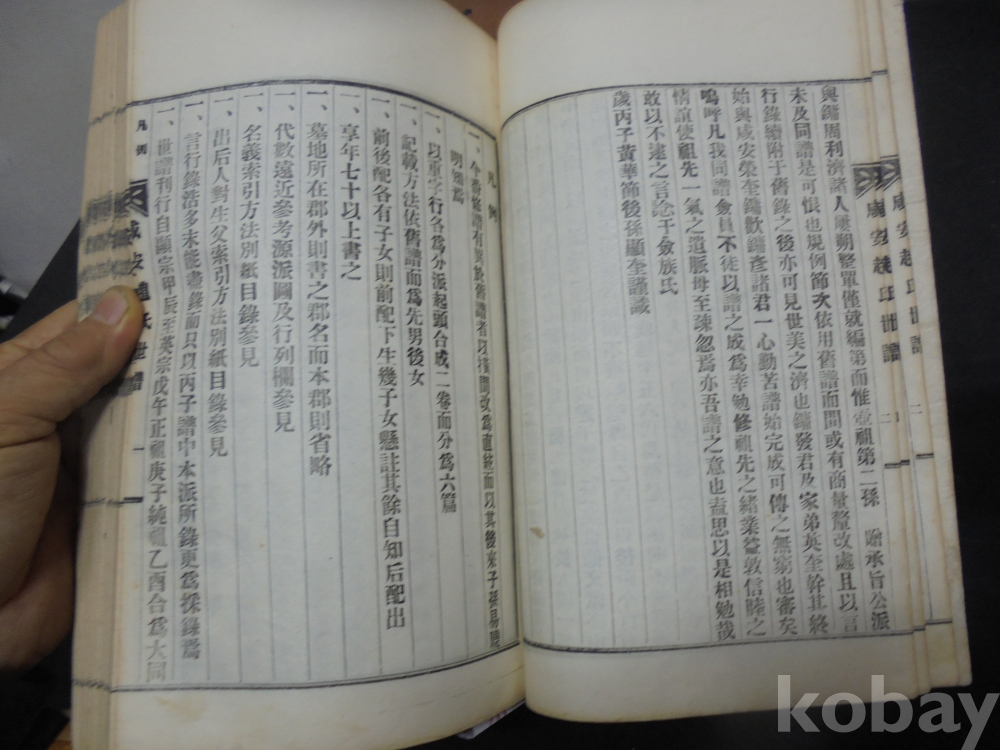 與鏞周利濟諸人屢朔整單僅就編第而惟壼祖第二孫 贍承旨公派
未及同譜是可恨也規例節次依用舊譜而間或有商量釐改處且以言
行錄續附于舊錄之後亦可見世美之濟也鏞發君及家弟英奎幹其終
始與咸安榮奎鏞歡鏞彥諸君一心勤苦譜始完成可傳之無窮也審矣
嗚呼凡我同譜僉員不徒以譜之成爲幸勉修祖先之緒業益敦信睦之
情誼使祖先一氣之遺脈毋至疎忽焉亦吾譜之意也盍思以是相勉哉
敢以不逮之言諗于僉族氏
歲丙子黃華節後孫顯奎謹識
咸安趙氏世譜 二
咸安趙氏世譜 一
凡例
一、今番修譜有異於舊譜者以橫間改爲直統而以其後來子孫易
明知焉
一、以重字行各爲分派起頭合成二卷而分爲六篇
一、記載方法依舊譜而爲先男後女
一、前後配各有子女則前配下生幾子女懸註其餘自知后配出
一、享年七十以上書之
一、墓地所在郡外則書之郡名而本郡則省略
一、代數遠近參考源派圖及行列欄參見
一、名義索引方法別紙目錄參見
一、出后人對生父索引方法別紙目錄參見
一、言行錄浩多未能盡錄而只以丙子譜中本派所錄更爲採錄焉
一、世譜刊行自顯宗甲辰至英宗戊午正祖庚子純祖乙酉合爲大同
凡例
咸安趙氏世譜
一
kobay